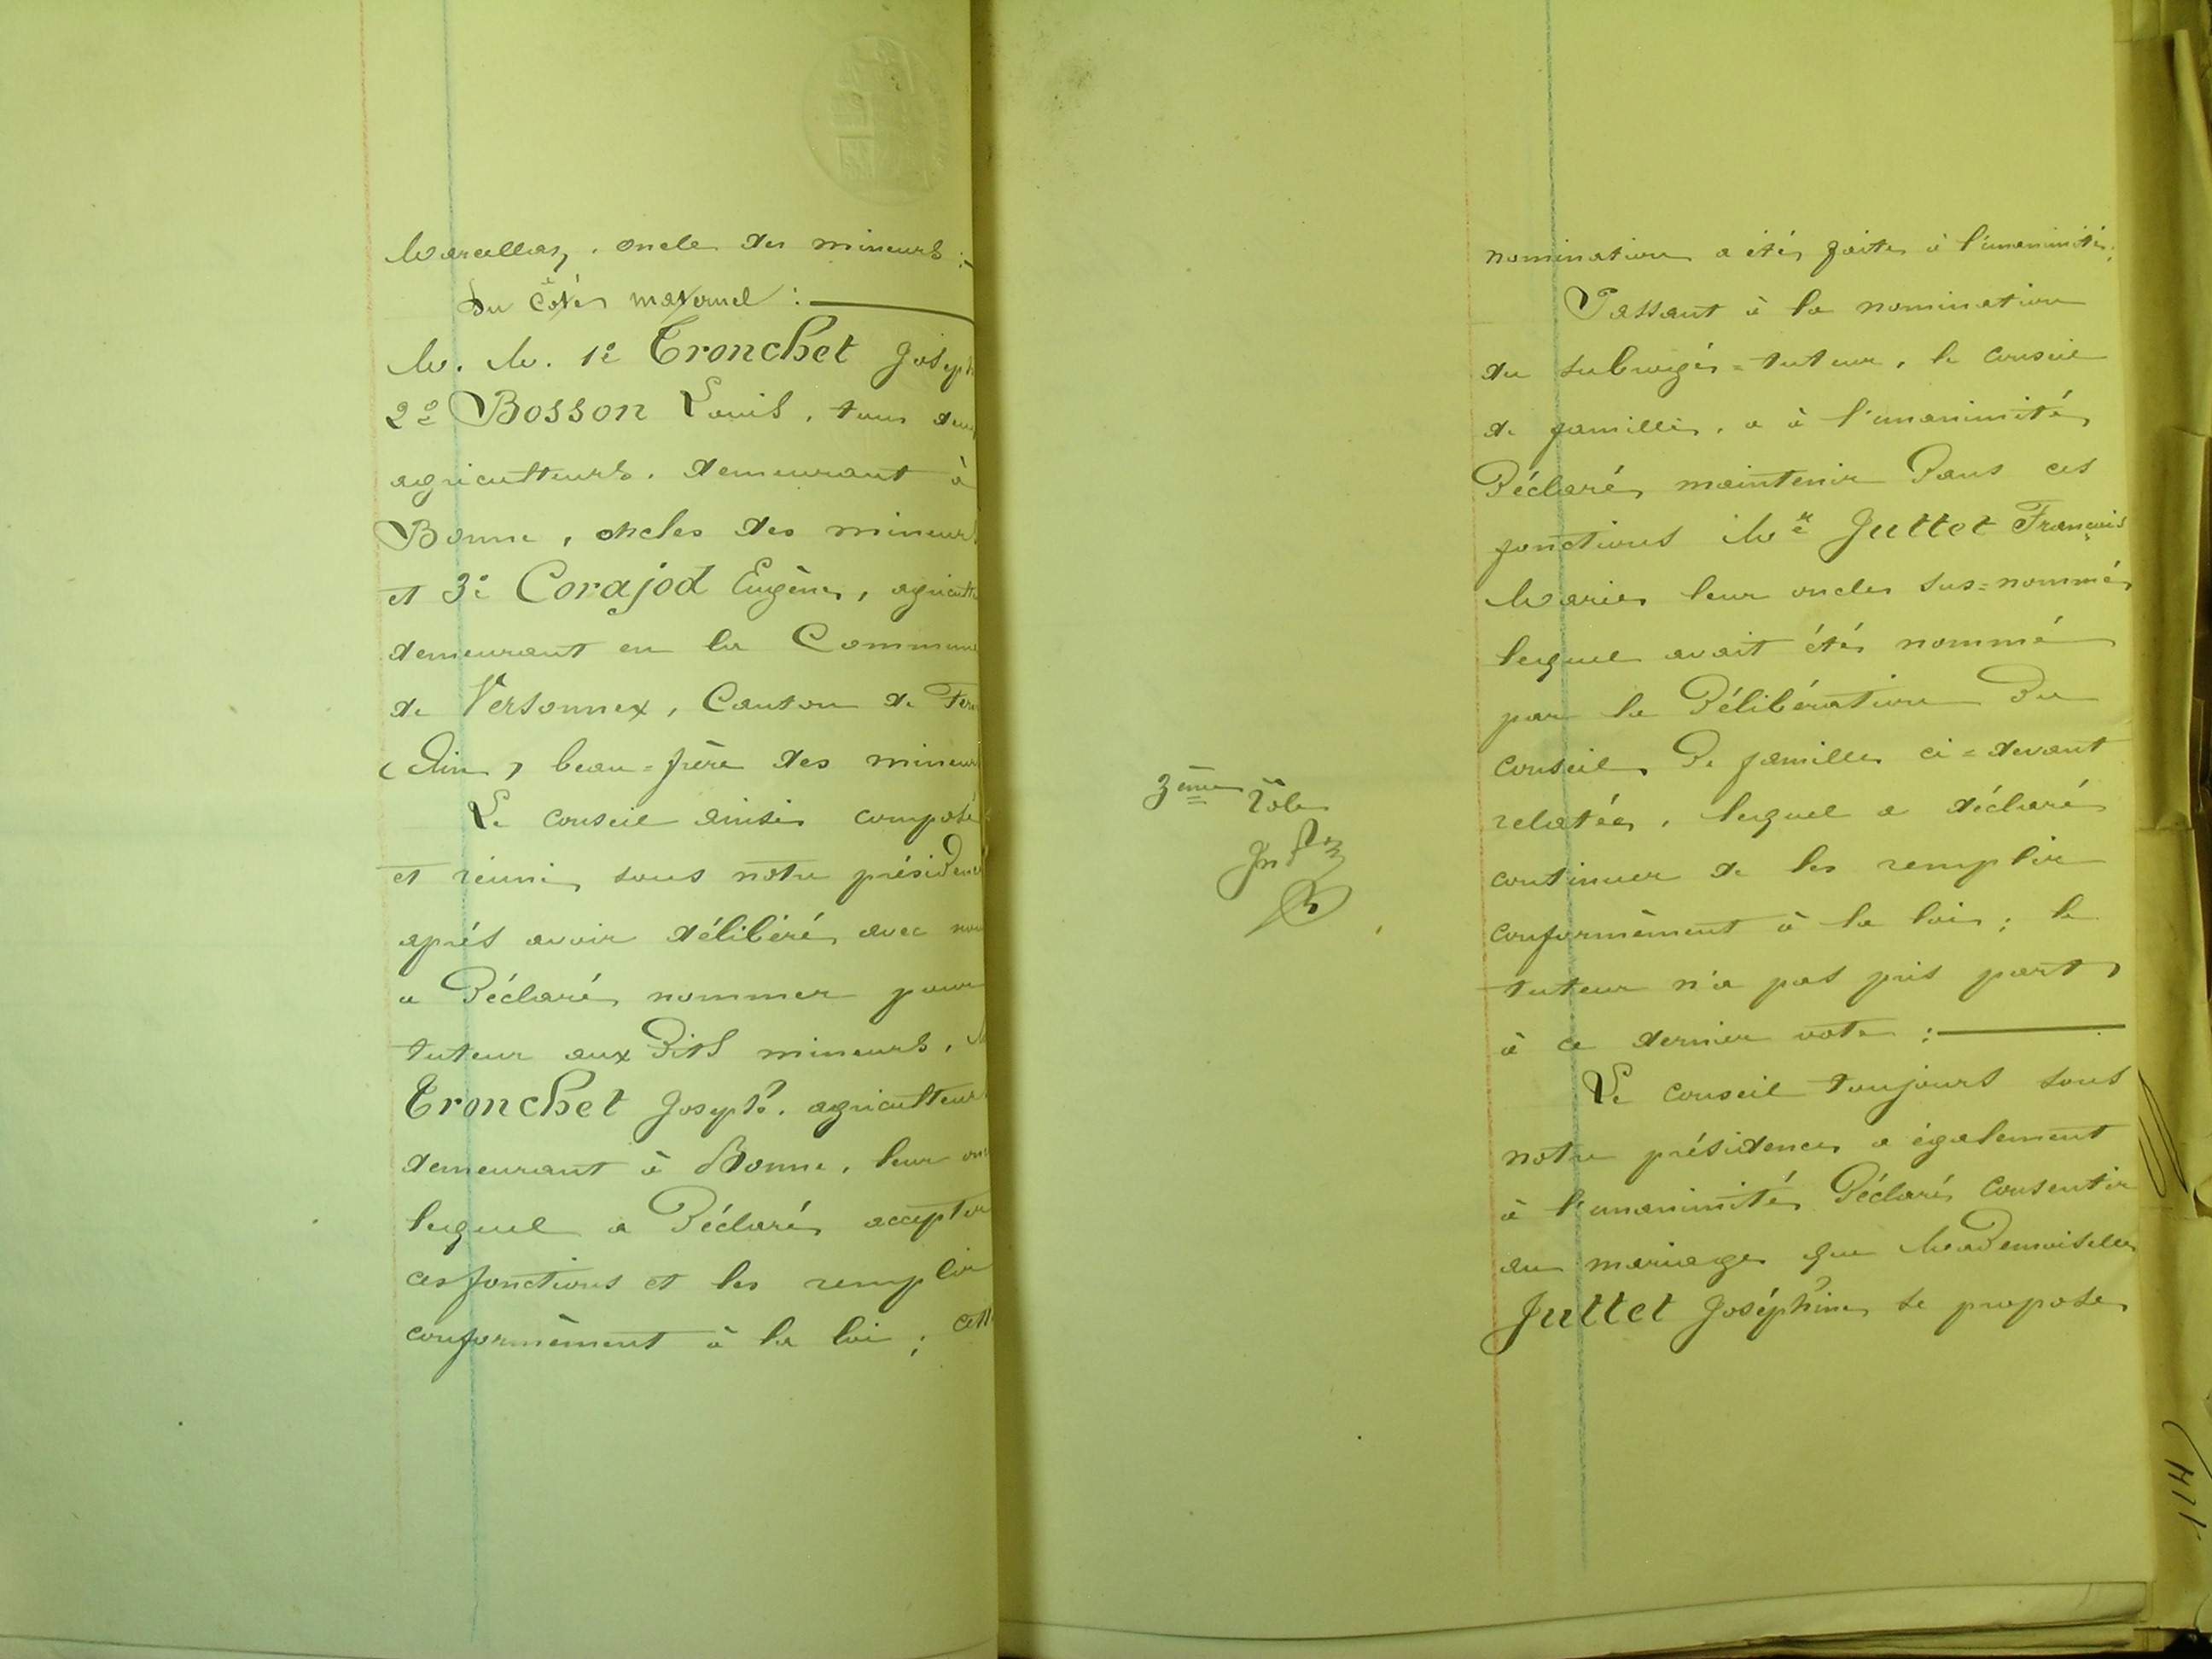 Marcellaz, oncle des mineurs ;
Du côté maternel : —
M. M. 1° Tronchet Joseph
2° Bosson Louis, tous deux
agriculteurs, demeurant à
Bonne, oncles des mineurs
et 3° Corajod Eugène, agricult
demeurant en la Commune
de Versonnex, Canton de Fer
(Ain) beau-frère des mineurs
Le conseil ainsi composé
et réuni sous notre présidence
après avoir délibéré avec nous
a Déclaré nommer pour
tuteur aux Dits mineurs, M
Tronchet Joseph, agriculteur
demeurant à Bonne, leur on
lequel a Déclaré accepter
ces fonctions et les remplir
conformèment à la loi ; cett
3ème rôle
nomination a été faite à l'unanimité ;
Passant à la nomination
du subrogé=tuteur, le conseil
de famille, a à l'unanimité
Déclaré maintenir Dans ces
fonctions Mr Juttet François
Marie leur oncle sus=nommé
lequel avait été nommé
par la Délibération Du
conseil De famille ci=devant
relatée, lequel a déclaré
continuer de les remplir
conformèment à la loi ; le
tuteur n'a pas pris part
à ce dernier vote ; —
Le conseil toujours sous
notre présidence a également
à l'unanimité Déclaré consentir
au mariage que Mademoiselle
Juttet Joséphine se propose